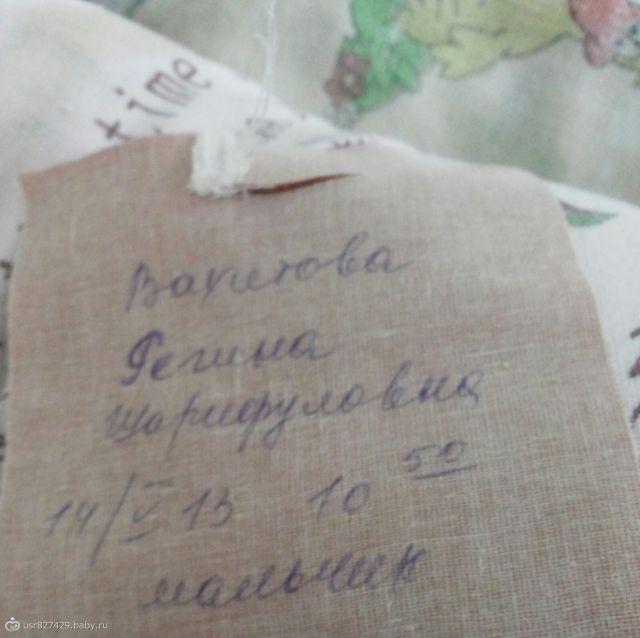 time
Вахитова
Регина
Шарифуловна
14/V 13 10 50
мальчик
usr827429.baby.ru